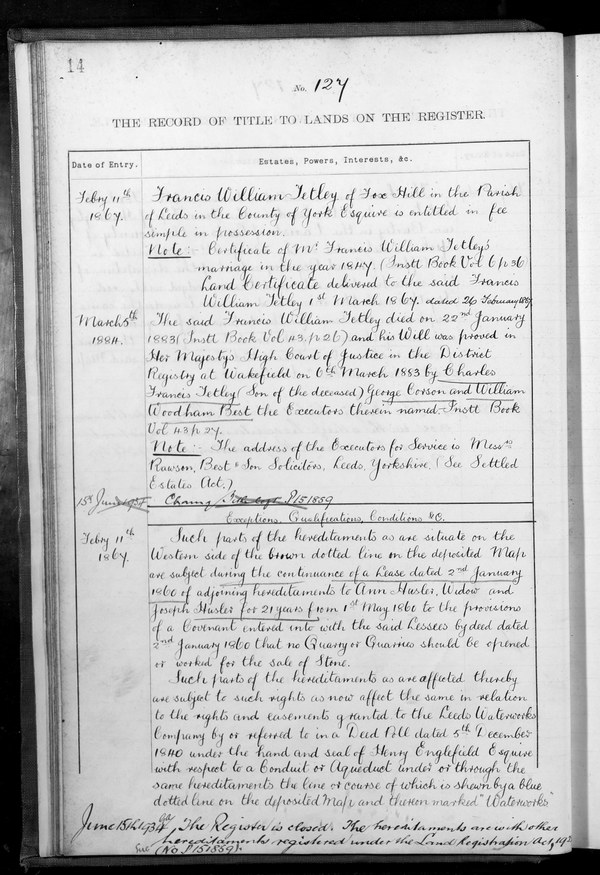 14
No. 127
THE RECORD OF TITLE TO LANDS ON THE REGISTER.
Date of Entry.
Estates, Powers, Interests, &c.
Febry 11th
1867.
Francis William Tetley of Fox Hill in the Parish
of Leeds in the County of York Esquire is entitled in fee
simple in possession.
Note :- Certificate of Mr Francis William Tetley's
marriage in the year 1847. (Instt Book Vol 6 p 36
Land Certificate delivered to the said Francis
William Tetley 1st March 1867. dated 26 February 1867
March 5th
1884.
The said Francis William Tetley died on 22nd January
1883 (Instt Book Vol 43. p 26) and his Will was proved in
Her Majesty's High Court of Justice in the District
Registry at Wakefield on 6th March 1883 by Charles
Francis Tetley (Son of the deceased) George Corson and William
Woodham Best the Executors therein named Instt Book
Vol 43 p 27.
Note :- The address of the Executors for Service is Messrs
Rawson, Best & Son Solicitors, Leeds, Yorkshire. (See Settled
Estates Act.)
15th June
P151859
Exceptions, Qualifications, Conditions &c.
Febry 11th
1867.
Such parts of the hereditaments as are situate on the
Western side of the brown dotted line on the deposited Map
are subject during the continuance of a Lease dated 2nd January
1860 of adjoining hereditaments to Ann Husler, Widow and
Joseph Husler for 21 years from 1st May 1860 to the provisions
of a Covenant entered into with the said Lessees by deed dated
2nd January 1860 that no Quarry or Quarries should be opened
or worked for the sale of Stone.
Such parts of the hereditaments as are affected thereby
are subject to such rights as now affect the same in relation
to the rights and easements granted to the Leeds Waterworks
Company by or referred to in a Deed Poll dated 5th December
1840 under the hand and seal of Henry Englefield Esquire
with respect to a Conduit or Aqueduct under or through the
same hereditaments the line or course of which is shewn by a blue
dotted line on the deposited Map and thereon marked "Waterworks"
June 15th 1934
The Register is closed. The hereditaments are with other
hereditaments registered under the Land Registration Act, 192
(No. P151859).